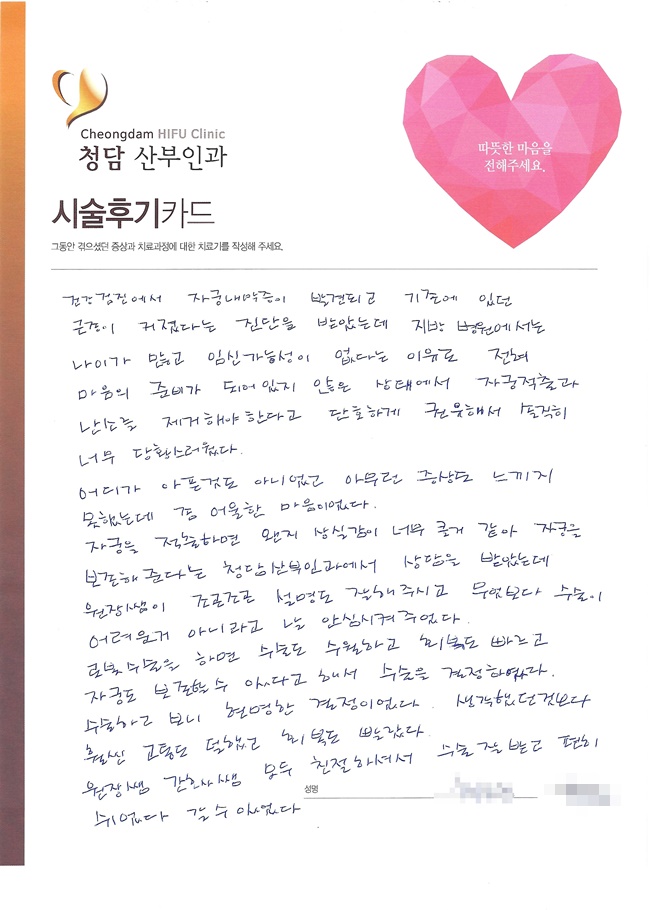 Cheongdam HIFU Clinic
청담 산부인과
따뜻한 마음을
전해주세요.
시술후기카드
그동안 겪으셨던 증상과 치료과정에 대한 치료기를 작성해 주세요.
건강검진에서 자궁내막증이 발견되고 기존에 있던
근종이 커졌다는 진단을 받았는데 지방 병원에서는
나이가 많고 임신가능성이 없다는 이유로 전혀
마음의 준비가 되어있지 않은 상태에서 자궁적출과
난소를 제거해야한다고 단호하게 권유해서 솔직히
너무 당황스러웠다.
어디가 아픈것도 아니었고 아무런 증상도 느끼지
못했는데 좀 어울한 마음이었다.
자궁을 적출하면 왠지 상실감이 너무 클거 같아 자궁을
보존해준다는 청담산부인과에서 상담을 받았는데
원장쌤이 조곤조곤 설명도 잘해주시고 무엇보다 수술이
어려운게 아니라고 날 안심시켜주었다.
로봇수술을 하면 수술도 수월하고 회복도 빠르고
자궁도 보존할수 있다고 해서 수술을 결정하였다.
수술하고 보니 현명한 결정이었다. 생각했던것보다
훨씬 고통도 덜했고 회복도 빨랐다.
원장쌤 간호사쌤 모두 친절하셔서 수술 잘받고 편히
쉬었다 갈수 있었다
성명